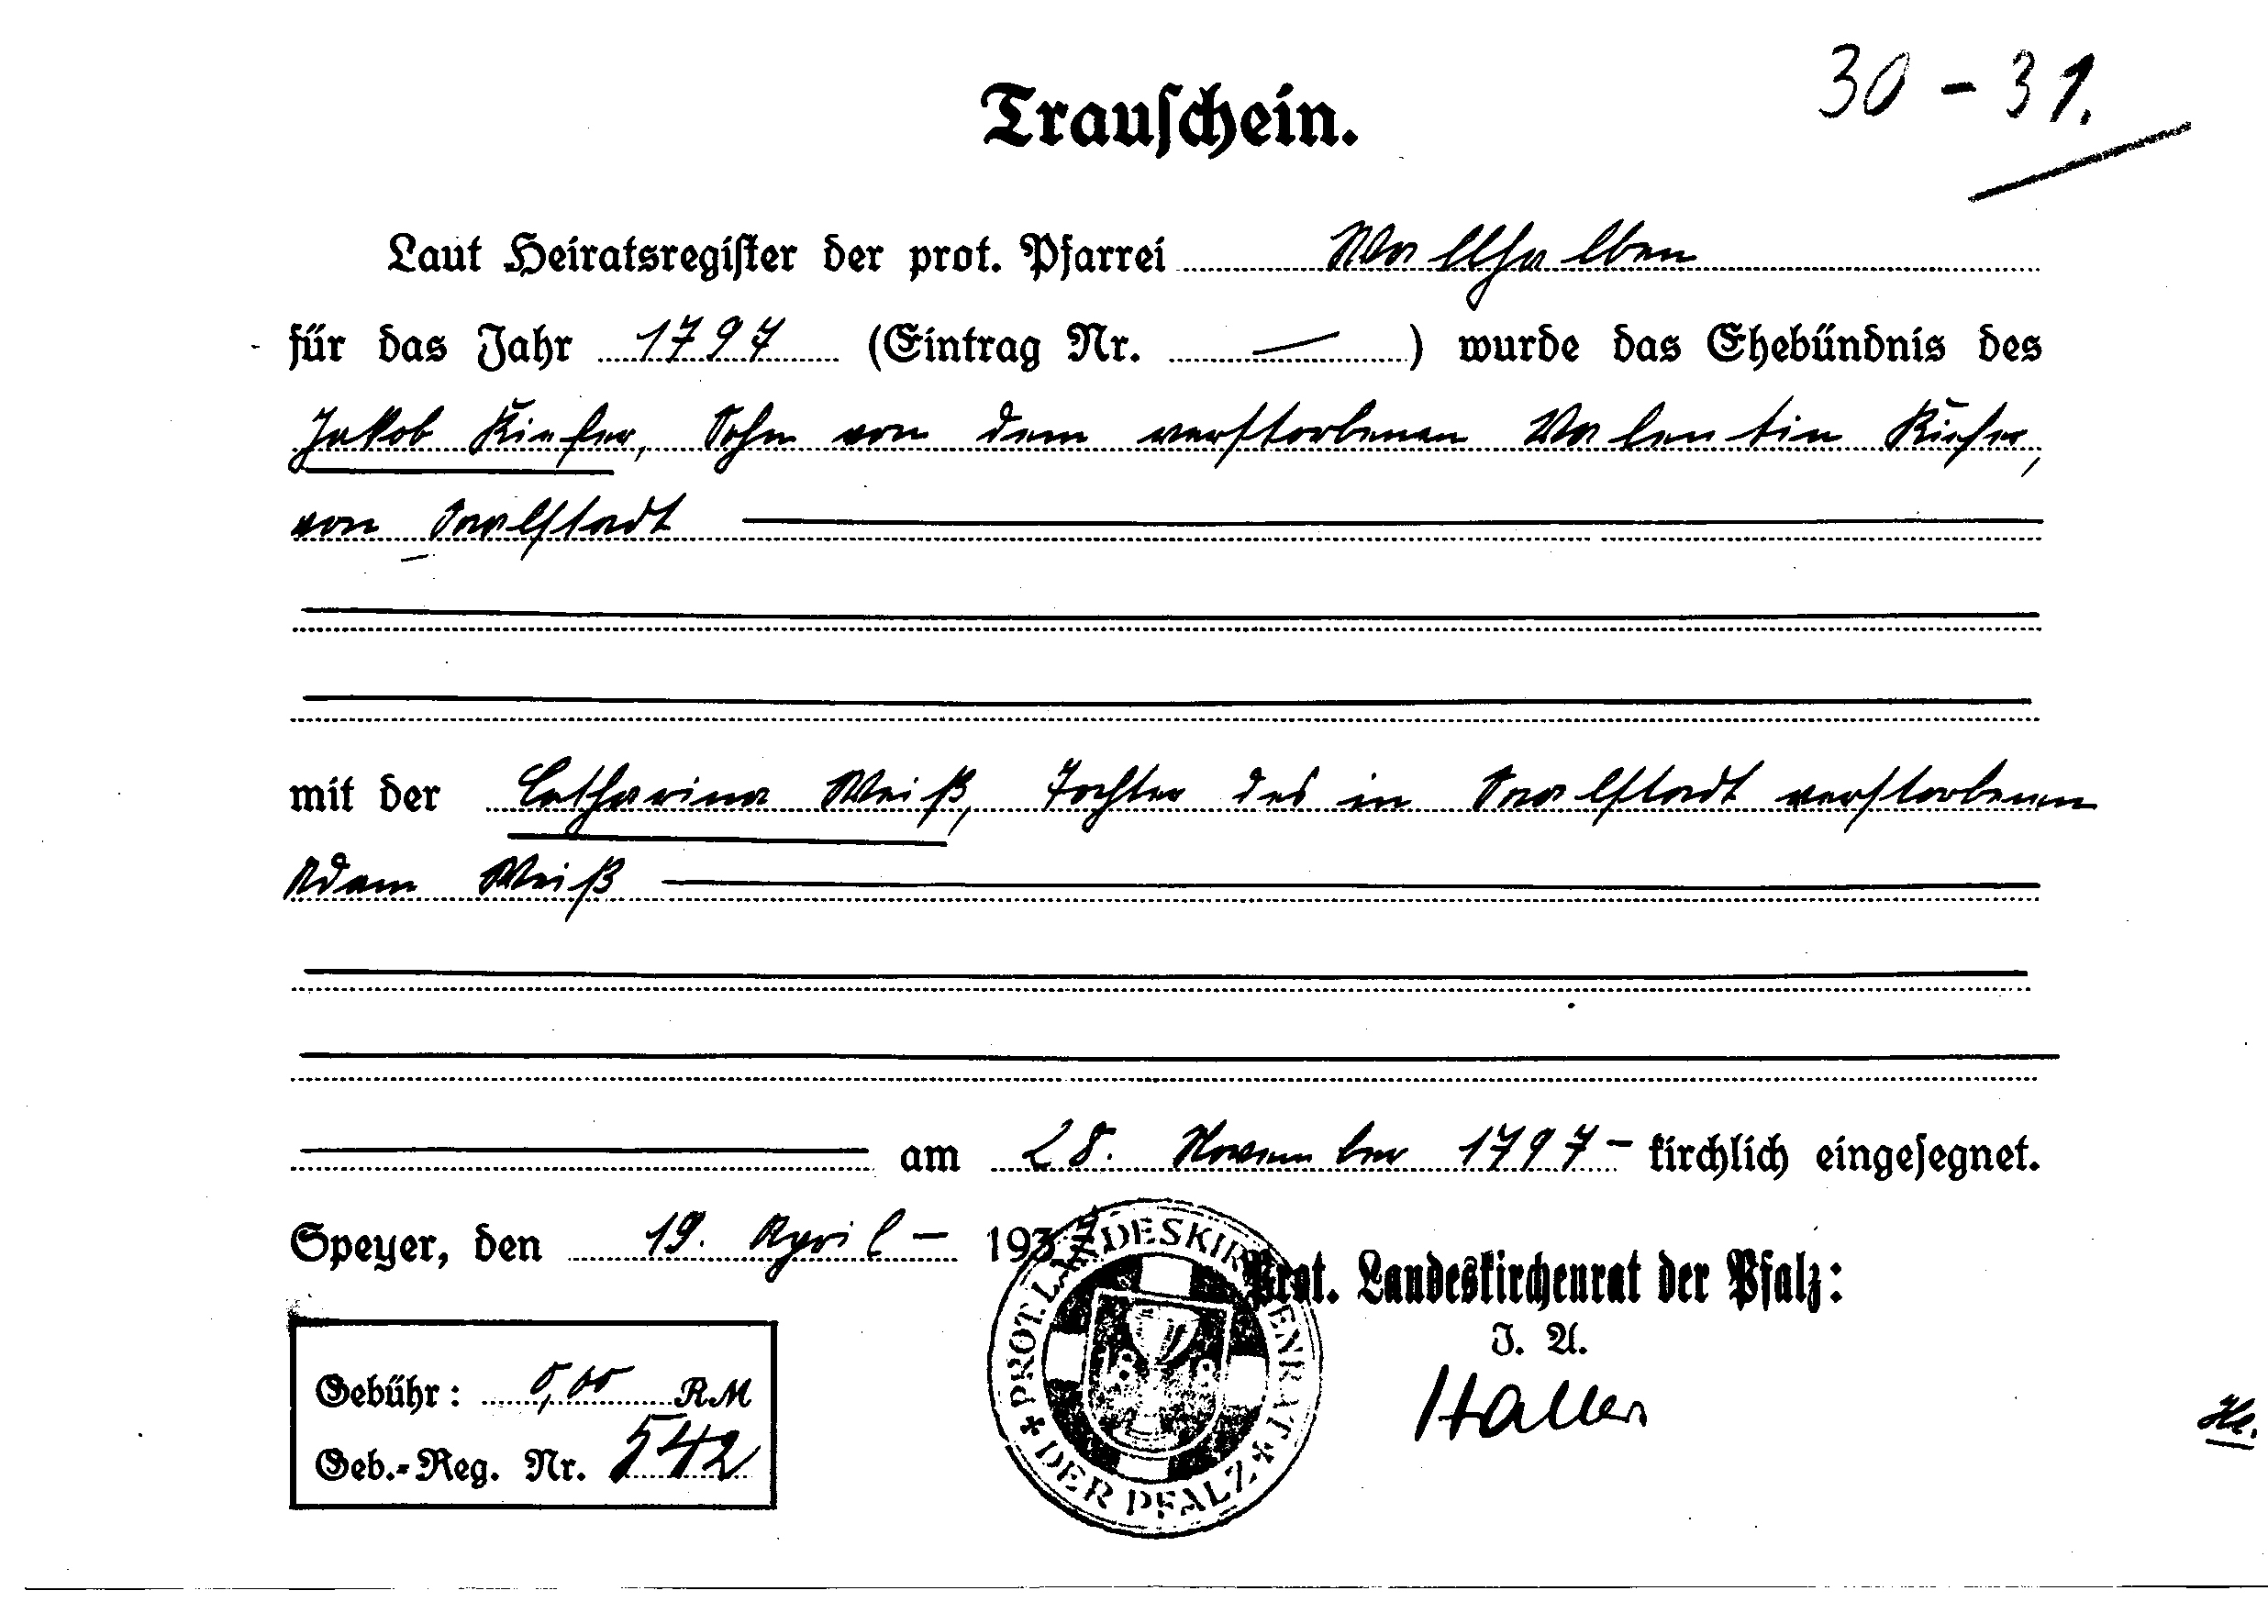 30-31.
Trauschein.
Laut Heiratsregister der prot. Pfarrei Wallhalben
für das Jahr 1797 (Eintrag Nr. —) wurde das Ehebündnis des
Jakob Kiefer, Sohn von dem verstorbenen Valentin Kiefer,
von Saalstadt
mit der Catharina Weiß, Tochter des in Saalstadt verstorbenen
Adam Weiß
am 28. November 1797 - kirchlich eingesegnet.
Speyer, den 19. April - 1937
Prot. Landeskirchenrat der Pfalz:
I. A.
PROT. LANDESKIRCHENRAT DER PFALZ
Gebühr: 0,60 RM
Geb.-Reg. Nr. 542